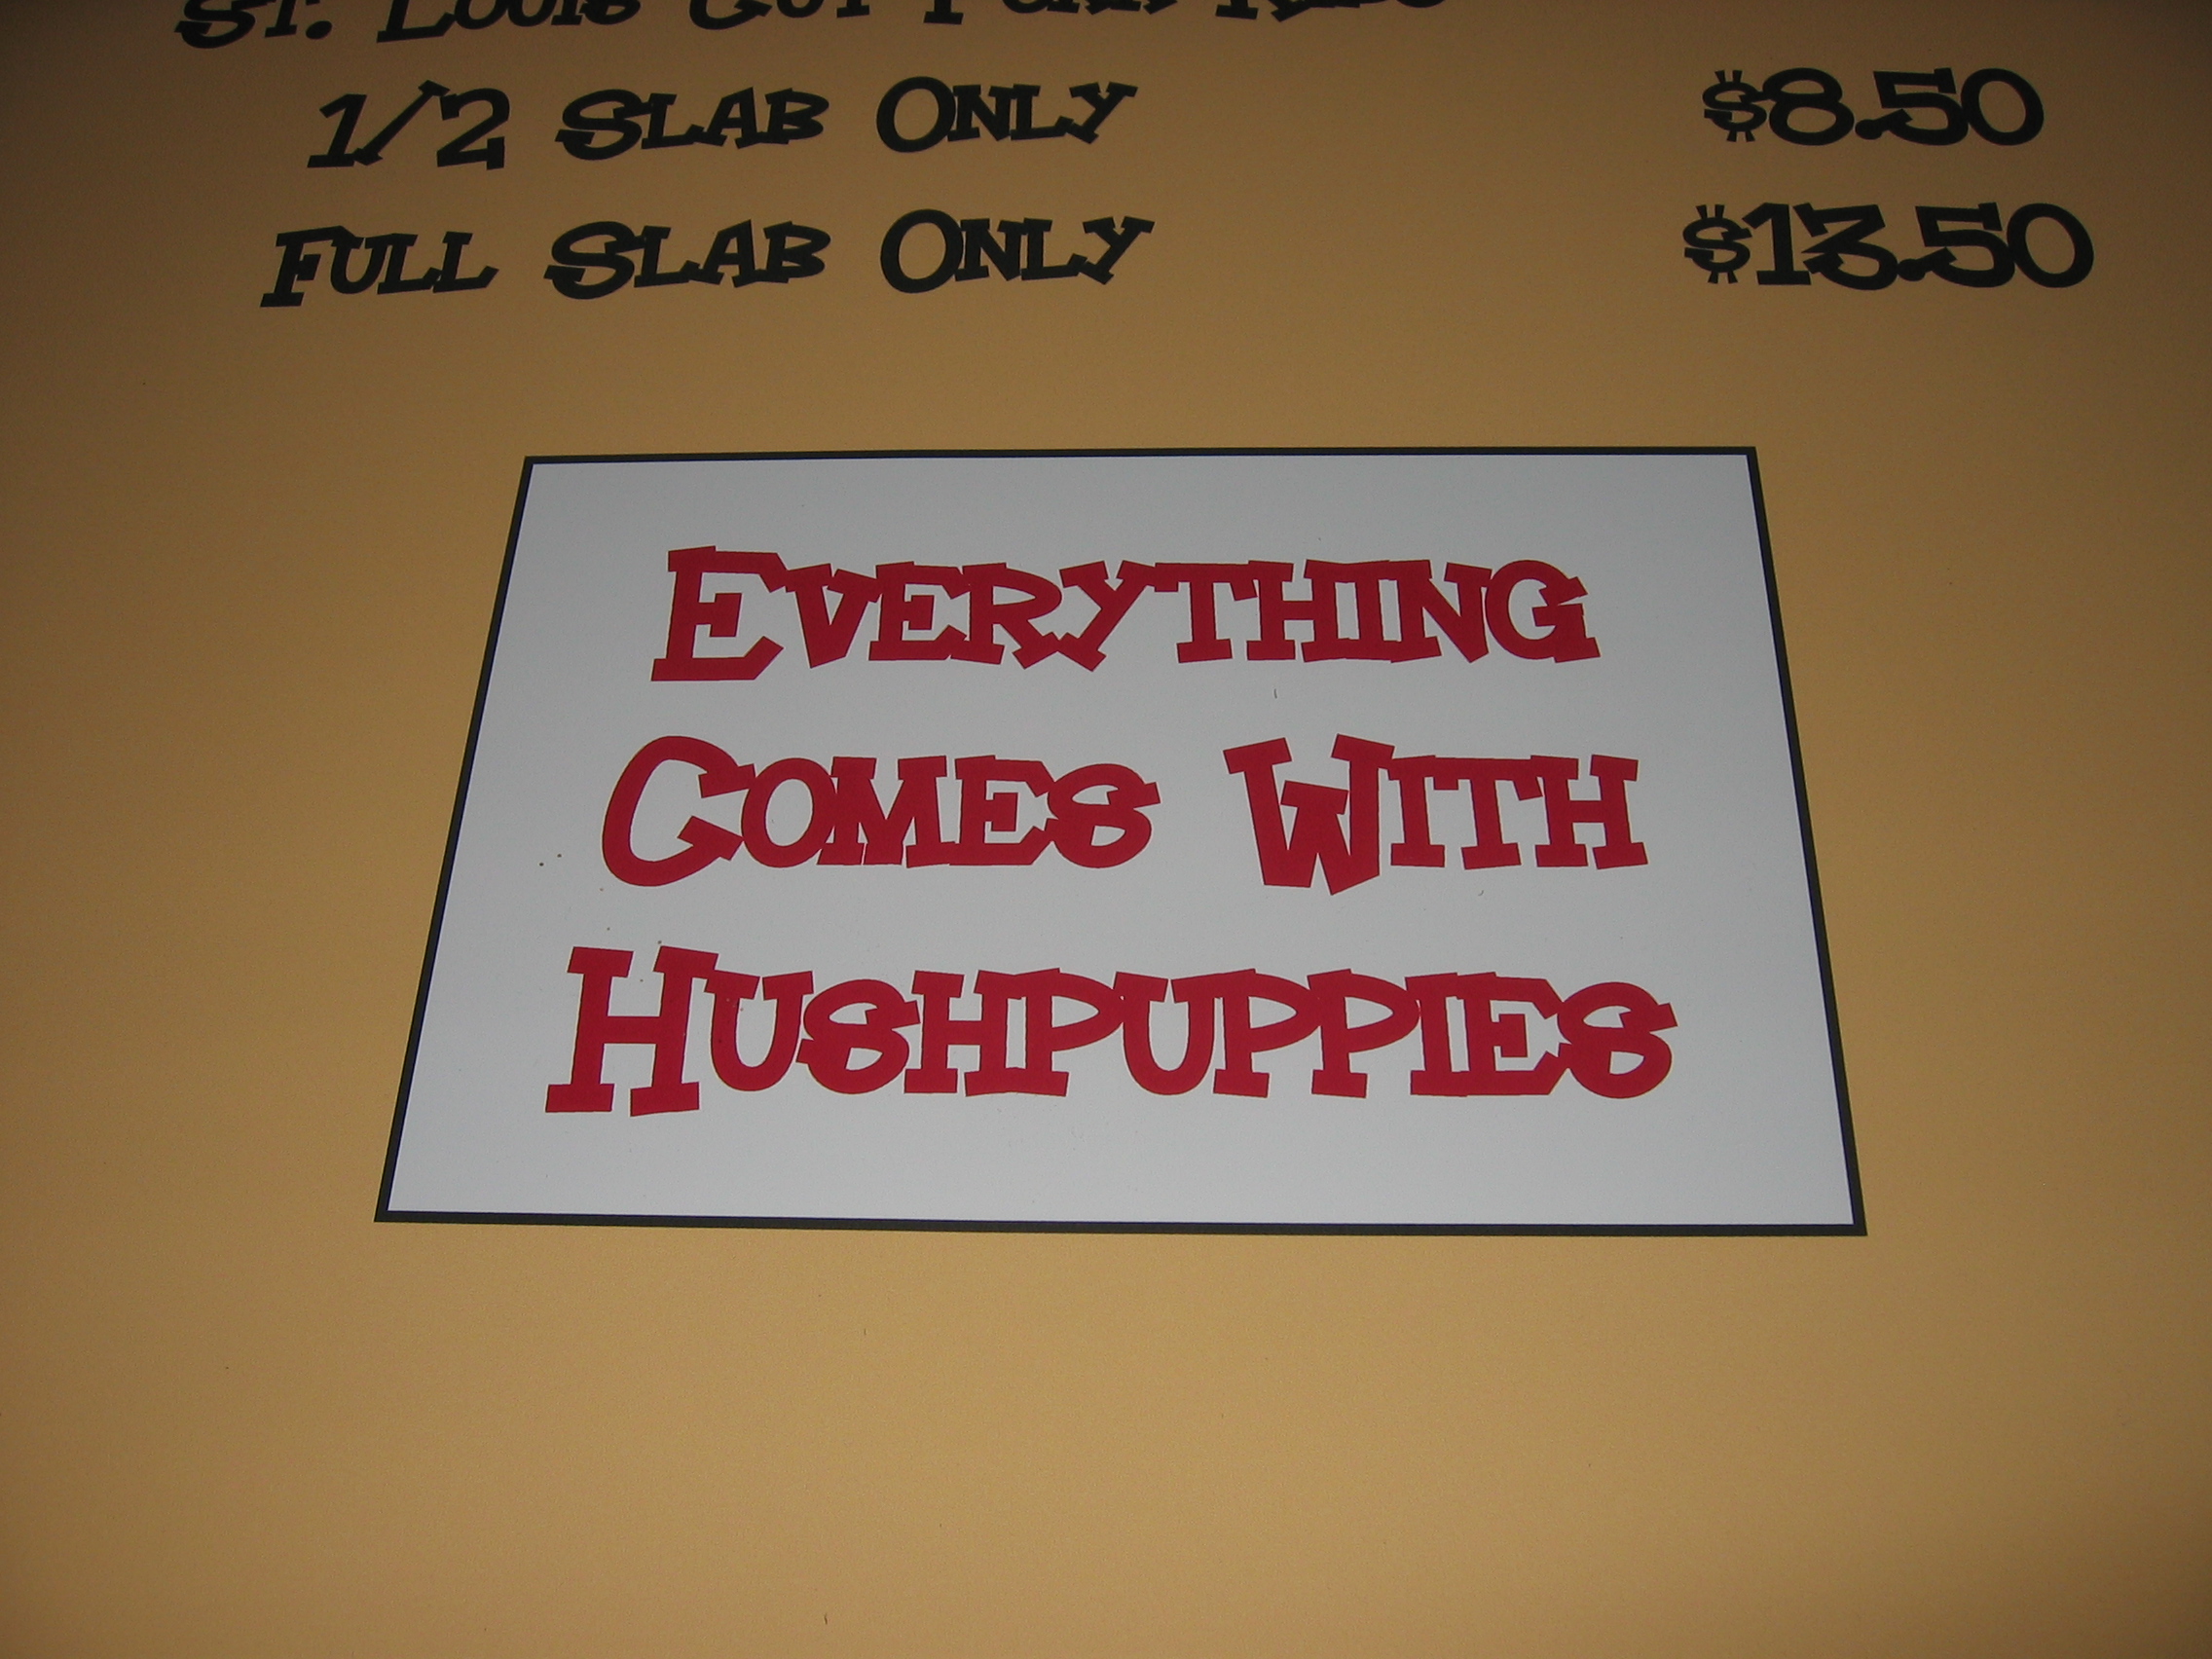 St. Louis Cut Pork Ribs
1/2 Slab Only $8.50
Full Slab Only $13.50
Everything
Comes With
Hushpuppies